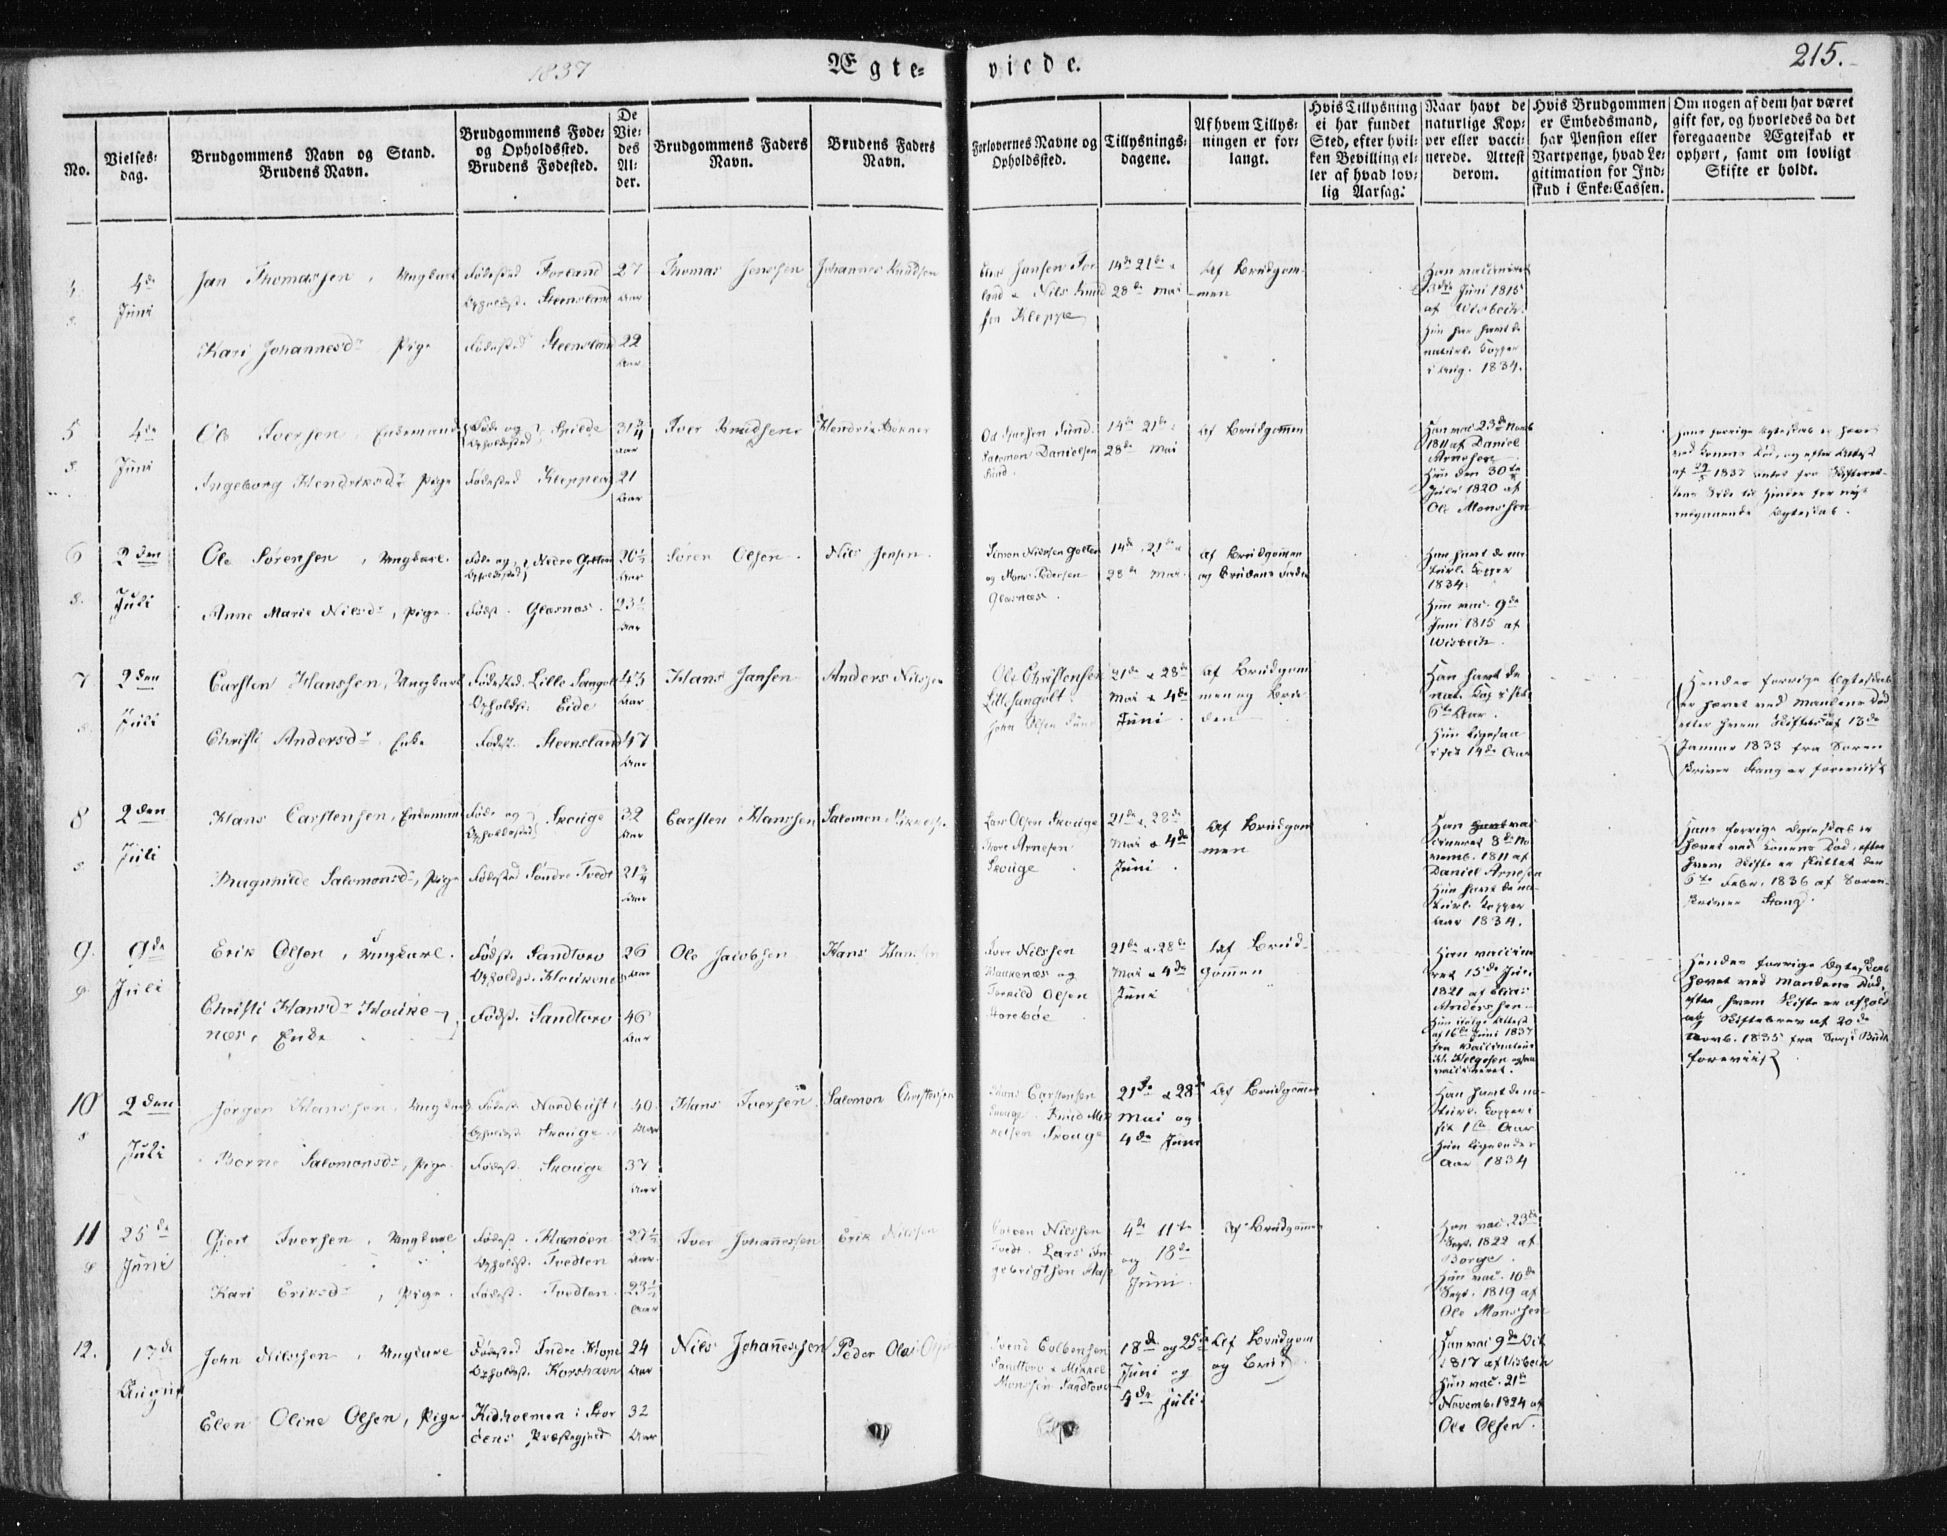 1837
Ægte-
viede.
215.
No.
Vielses-
dag.
Brudgommens Navn og Stand.
Brudens Navn.
Brudgommens Føde-
og Opholdssted.
Brudens Fødested.
De
Vie-
des
Al-
der.
Brudgommens Faders
Navn.
Brudens Faders
Navn.
Forlovernes Navne og
Opholdssted.
Tillysnings-
dagene.
Af hvem Tillys-
ningen er for-
langt.
Hvis Tillysning
ei har fundet
Sted, efter hvil-
ken Bevilling el-
ler af hvad lov-
lig Aarsag.
Naar havt de
naturlige Kop-
per eller vacci-
nerede. Attest
derom.
Hvis Brudgommen
er Embedsmand,
har Pension eller
Vartpenge, hvad Le-
gitimation for Ind-
skud i Enke-Cassen.
Om nogen af dem har været
gift før, og hvorledes da det
foregaaende Ægteskab er
ophørt, samt om lovligt
Skifte er holdt.
4.
4de
Juni
Jan Thomassen, Ungkarl
Kari Johannesdr Pige
Fødested Forland
Opholdst. Steensland
Fødested Steensland
27
Aar
22
Aar
Thomas Jenssen
Johannes Knudsen
Jansen For
land & Nils Knud
sen Kleppe
14de 21de &
28de Mai
Af Brudgom-
men
Han vaccineret
Juni 1815
af Wisbech.
Hun har havt de
naturl. Kopper
i Aug. 1834.
5
4de
Juni
Ole Iversen, Enkemand
Ingeborg Hendriksdr Pige
Føde og
Opholdssted
Spilde
Fødested Kleppe
31 3/4
Aar
21
Aar
Iver Knudsen
Hendrik
Sund
Salomon Danielsen
Sund.
14de 21de
28de Mai
Af Brudgommen
Han vac 23de Novb
1811 af Daniel
Arnesen
Hun den 30te
Juli 1820 af
Ole Monssen
Hans forrige Ægteskab er hævet
ved Konens Død, og efter Attest
af 1837 intet fra Skifteret-
tens Side til Hinder for nyt
indgaaende Ægteskab.
6
2den
Juli
Ole Sørensen, Ungkarl.
Anne Marie Nilsdr, Pige
Føde og
Opholdssted
Nedre Golten
Fødst. Glæsnæs.
26 1/2
Aar
23 1/2
Aar
Søren Olsen.
Nils Jensen.
Simon Nilssen Golten
og Mons Pedersen
Glæsnæs.
14de, 21de &
28de Mai.
Af Brudgommen
og Brudens Fader
Han havt de na-
turl. Kopper
1834.
Hun vac. 9de
Juni 1815 af
Wisbech.
7
2den
Juli
Carsten Hanssen, Ungkarl
Christi Andersdr Enke
Fødested. Lille Sangolt
Opholdst: Eide
Fødest. Steensland
43
Aar
47
Aar
Hans Jansen
Anders Nilssen
Ole Christensen
Lille Sangolt.
John Olsen Sund
21de & 28de
Mai & 4de
Juni.
Af Brudgom
men og Bru-
den
Han havt de
nat. Kop. i sit
6te Aar.
Hun ligesaa
i sit 14de Aar
Hendes forrige Ægteskab
er hævet ved Mandens Død
efter hvem Skiftebr. af 13de
Januar 1833 fra Soren
skriver Stang er foreviist
8
2den
Juli
Hans Carstensen, Enkeman
Magnhilde Salomonsdr, Pige
Føde og
Opholdssted
Skouge
Fødested Søndre Tvedt
32
Aar
21 3/4
Aar
Carsten Hanssen
Salomon
Lars Olsen Skouge
Thore Arnesen
Skouge
21de & 28de
Mai & 4de
Juni.
Af Brudgom
men
Han vac
cineret 8de No
vemb. 1811 af
Daniel Arnesen
Hun havt de na-
turl. Kopper
Aar 1834.
Hans forrige Ægteskab er
hævet ved Konens Død, efter
hvem Skifte er sluttet den
6te Febr. 1836 af Soren-
skriver Stang.
9.
9de
Juli
Erik Olsen, Ungkarl.
Christi Hansdr Houke-
næs, Enke
Fødst. Sandtorv
Opholdst. Houkenæs
Fødst. Sandtorv
26
Aar
46
Aar
Ole Jacobsen
Hans
Iver Nilssen
Houkenæs og
Torkild Olsen
21de & 28de
Mai & 4de
Juni
Af Brud-
gommen
Han vaccine
ret 15de Juni
1821 af Elias
Anderssen
Hun ifølge Attest
af 16de Juni 1837
fra Vaccinateur
H. Helgesen ogsaa
vaccineret.
Hendes forrige Ægteskab
hævet ved Mandens Død,
efter hvem Skifte er afhold
og Skiftebrev af 20de
Novb. 1835 fra
foreviist
10
2den
Juli
Jørgen Hanssen, Ungkarl
Borni Salomonsdr, Pige
Fødest. Nordbust
Opholdst Skouge.
Fødest. Skouge
40.
Aar
37
Aar
Hans Iversen
Salomon Christensen
Hans Carstensen
Skouge. Knud Mik
kelsen Skouge
21de & 28de
Mai og
4de Juni
Af Brudgommen
Han havt de na-
turl. Kopper i
sit 1ste Aar
Hun ligeledes
Aar 1834
11
25de
Juni
Giert Iversen, Ungkarl
Kari Eriksdr, Pige.
Fødest. Hanøen
Opholdst. Tvedten
Fødest. Tvedten.
27 1/2
Aar.
23 1/2
Aar
Iver Johannessen
Erik Nilssen
Nilssen
Tvedt. Lars In
gebrigtsen Aase
4de 11te
og 18de
Juni.
Af Brudgommen
Han vac. 23de
Sept. 1822 af
Borge
Hun vac. 10de
Sept. 1819 af
Ole Monssen
12.
17de
August
John Nilssen, Ungkarl
Elen Oline Olsen, Pige
Fødested Indre
Opholdst. Korshavn
Kidholmen i Stor
øens Præstegjeld
24
Aar
32
Aar
Nils Johannessen
Peder Olai
Svend Colbensen
Sandtorv & Mikkel
Monssen Sandtorv
18de og 25de
Juni og
4de Juli.
Af Brudgom
og Brud
Han vac 9de Oct
1817 af Wisbech
Hun vac. 21de
Novemb. 1824 af
Ole Olsen.